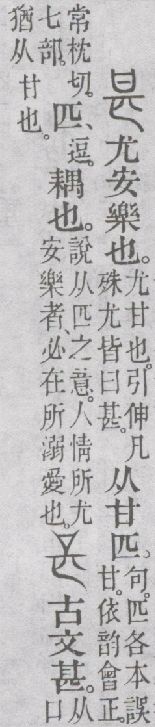 甚尤安樂也。尤甘也。引伸凡殊尤皆曰甚。从甘匹。句。匹各本誤甘。依韵會正。
常枕切。七部。匹、逗。耦也。說从匹之意。人情所尤安樂者、必在所溺愛也。古文甚。从口
猶从甘也。